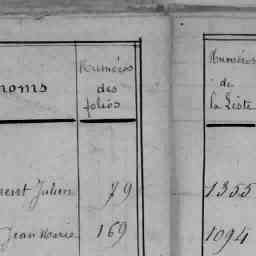 noms
Numéros
des
foliós
Numéros
de
la Liste
Julien 79
1355
Jean Marie 169
1094